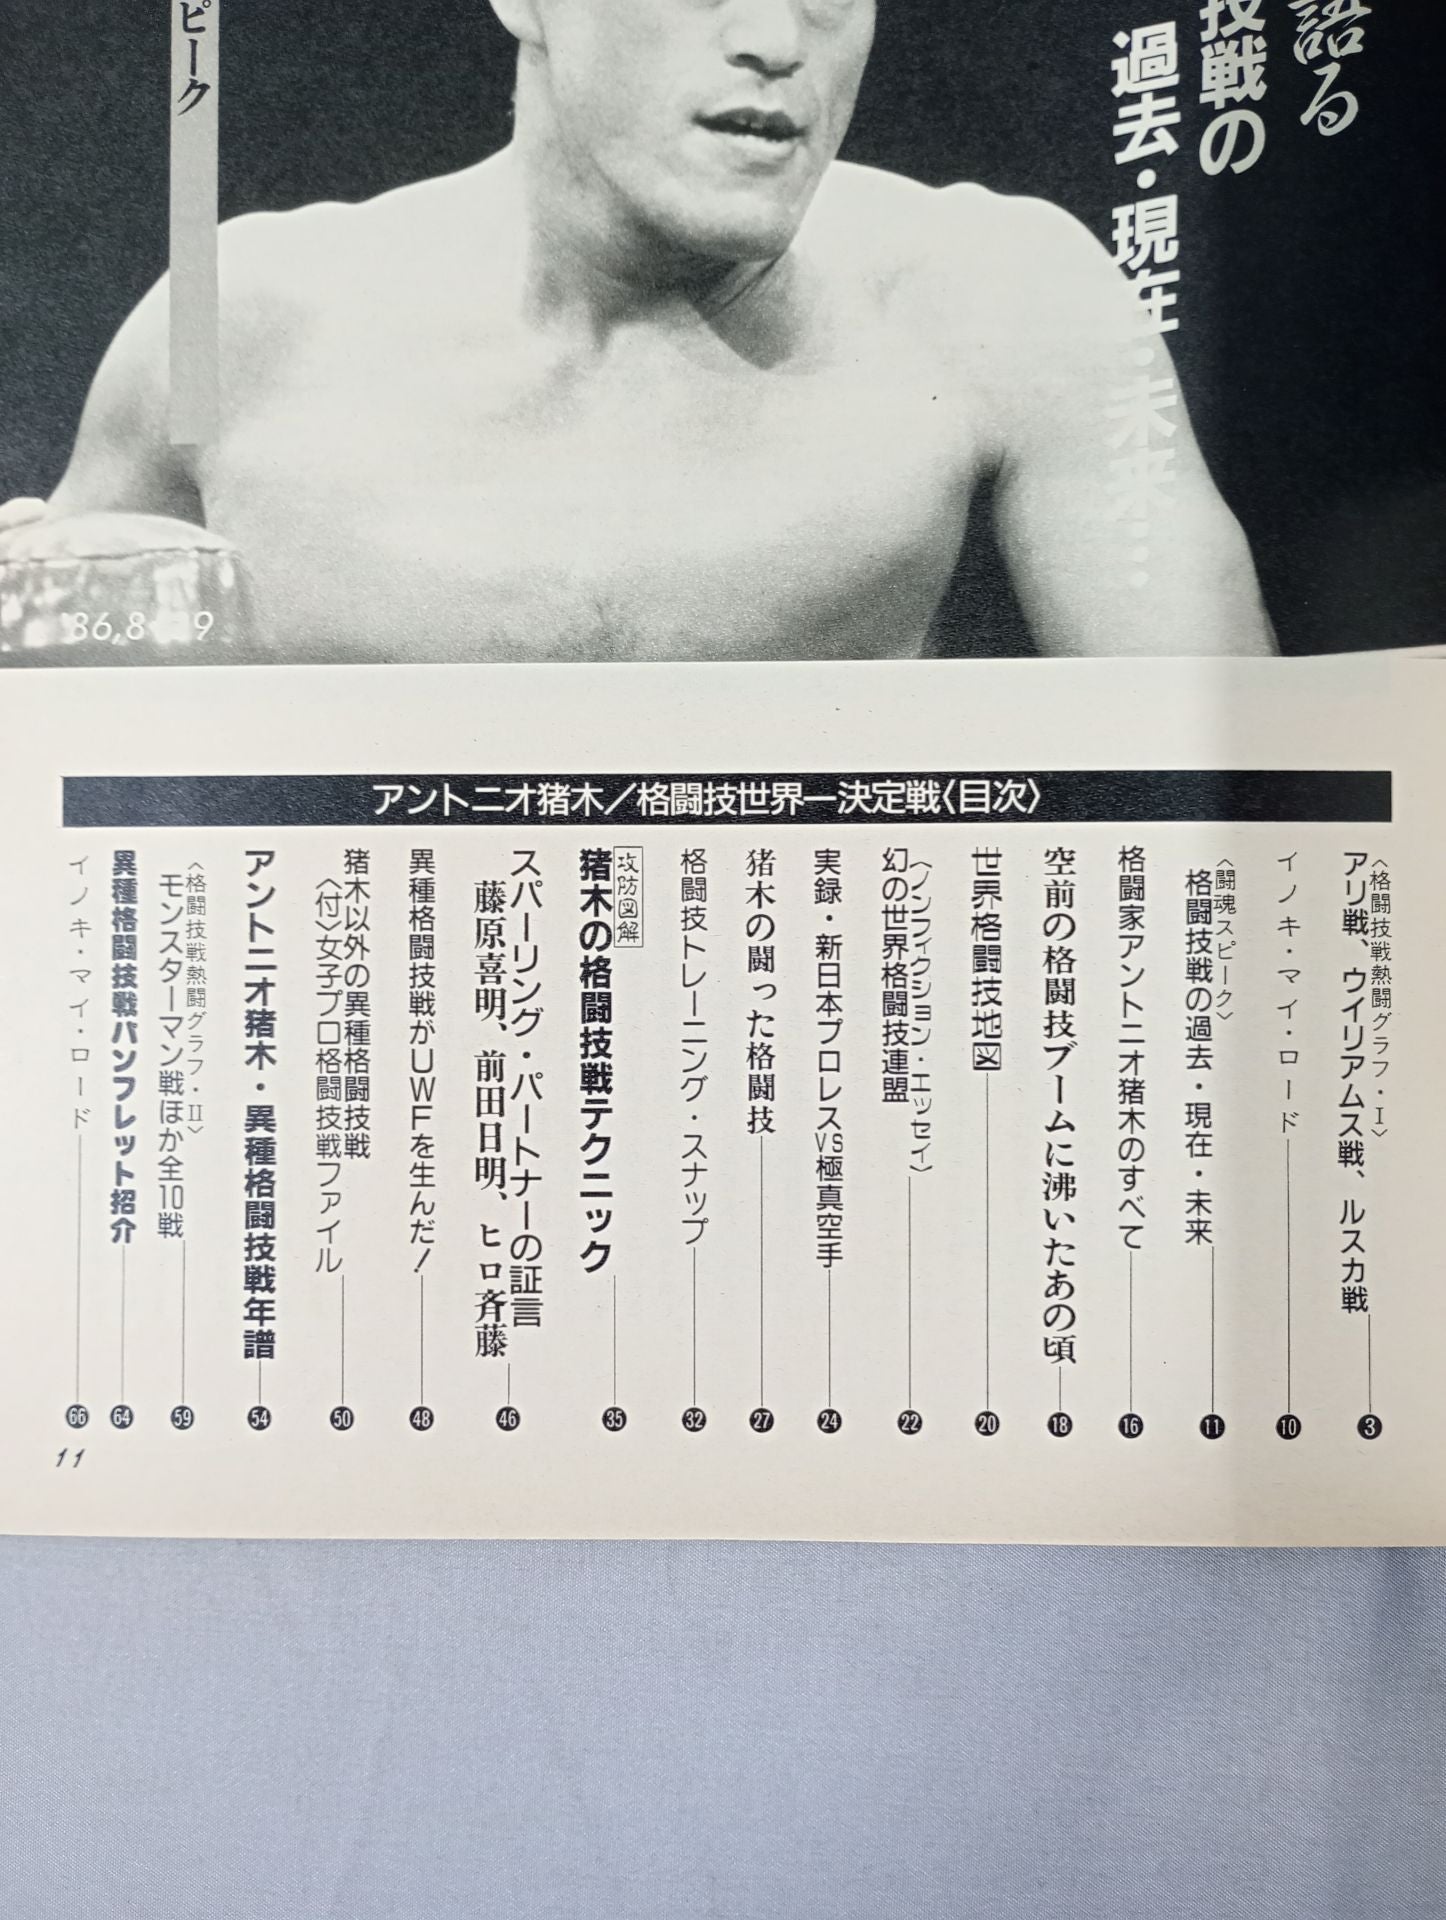 語る
技戦の
過去・現在・未来…
ピーク
アントニオ猪木／格闘技世界一決定戦〈目次〉
〈格闘技戦熱闘グラフ・Ⅰ〉
アリ戦、ウイリアムス戦、ルスカ戦 3
イノキ・マイ・ロード 10
〈闘魂スピーク〉
格闘技戦の過去・現在・未来 11
格闘家アントニオ猪木のすべて 16
空前の格闘技ブームに沸いたあの頃 18
世界格闘技地図 20
〈ノンフィクション・エッセイ〉
幻の世界格闘技連盟 22
実録・新日本プロレスVS極真空手 24
猪木の闘った格闘技 27
格闘技トレーニング・スナップ 32
攻防図解
猪木の格闘技戦テクニック 35
スパーリング・パートナーの証言
藤原喜明、前田日明、ヒロ斉藤 46
異種格闘技戦がUWFを生んだ！ 48
猪木以外の異種格闘技戦
〈付〉女子プロ格闘技戦ファイル 50
アントニオ猪木・異種格闘技戦年譜 54
〈格闘技戦熱闘グラフ・Ⅱ〉
モンスターマン戦ほか全10戦 59
異種格闘技戦パンフレット紹介 64
イノキ・マイ・ロード 66
11